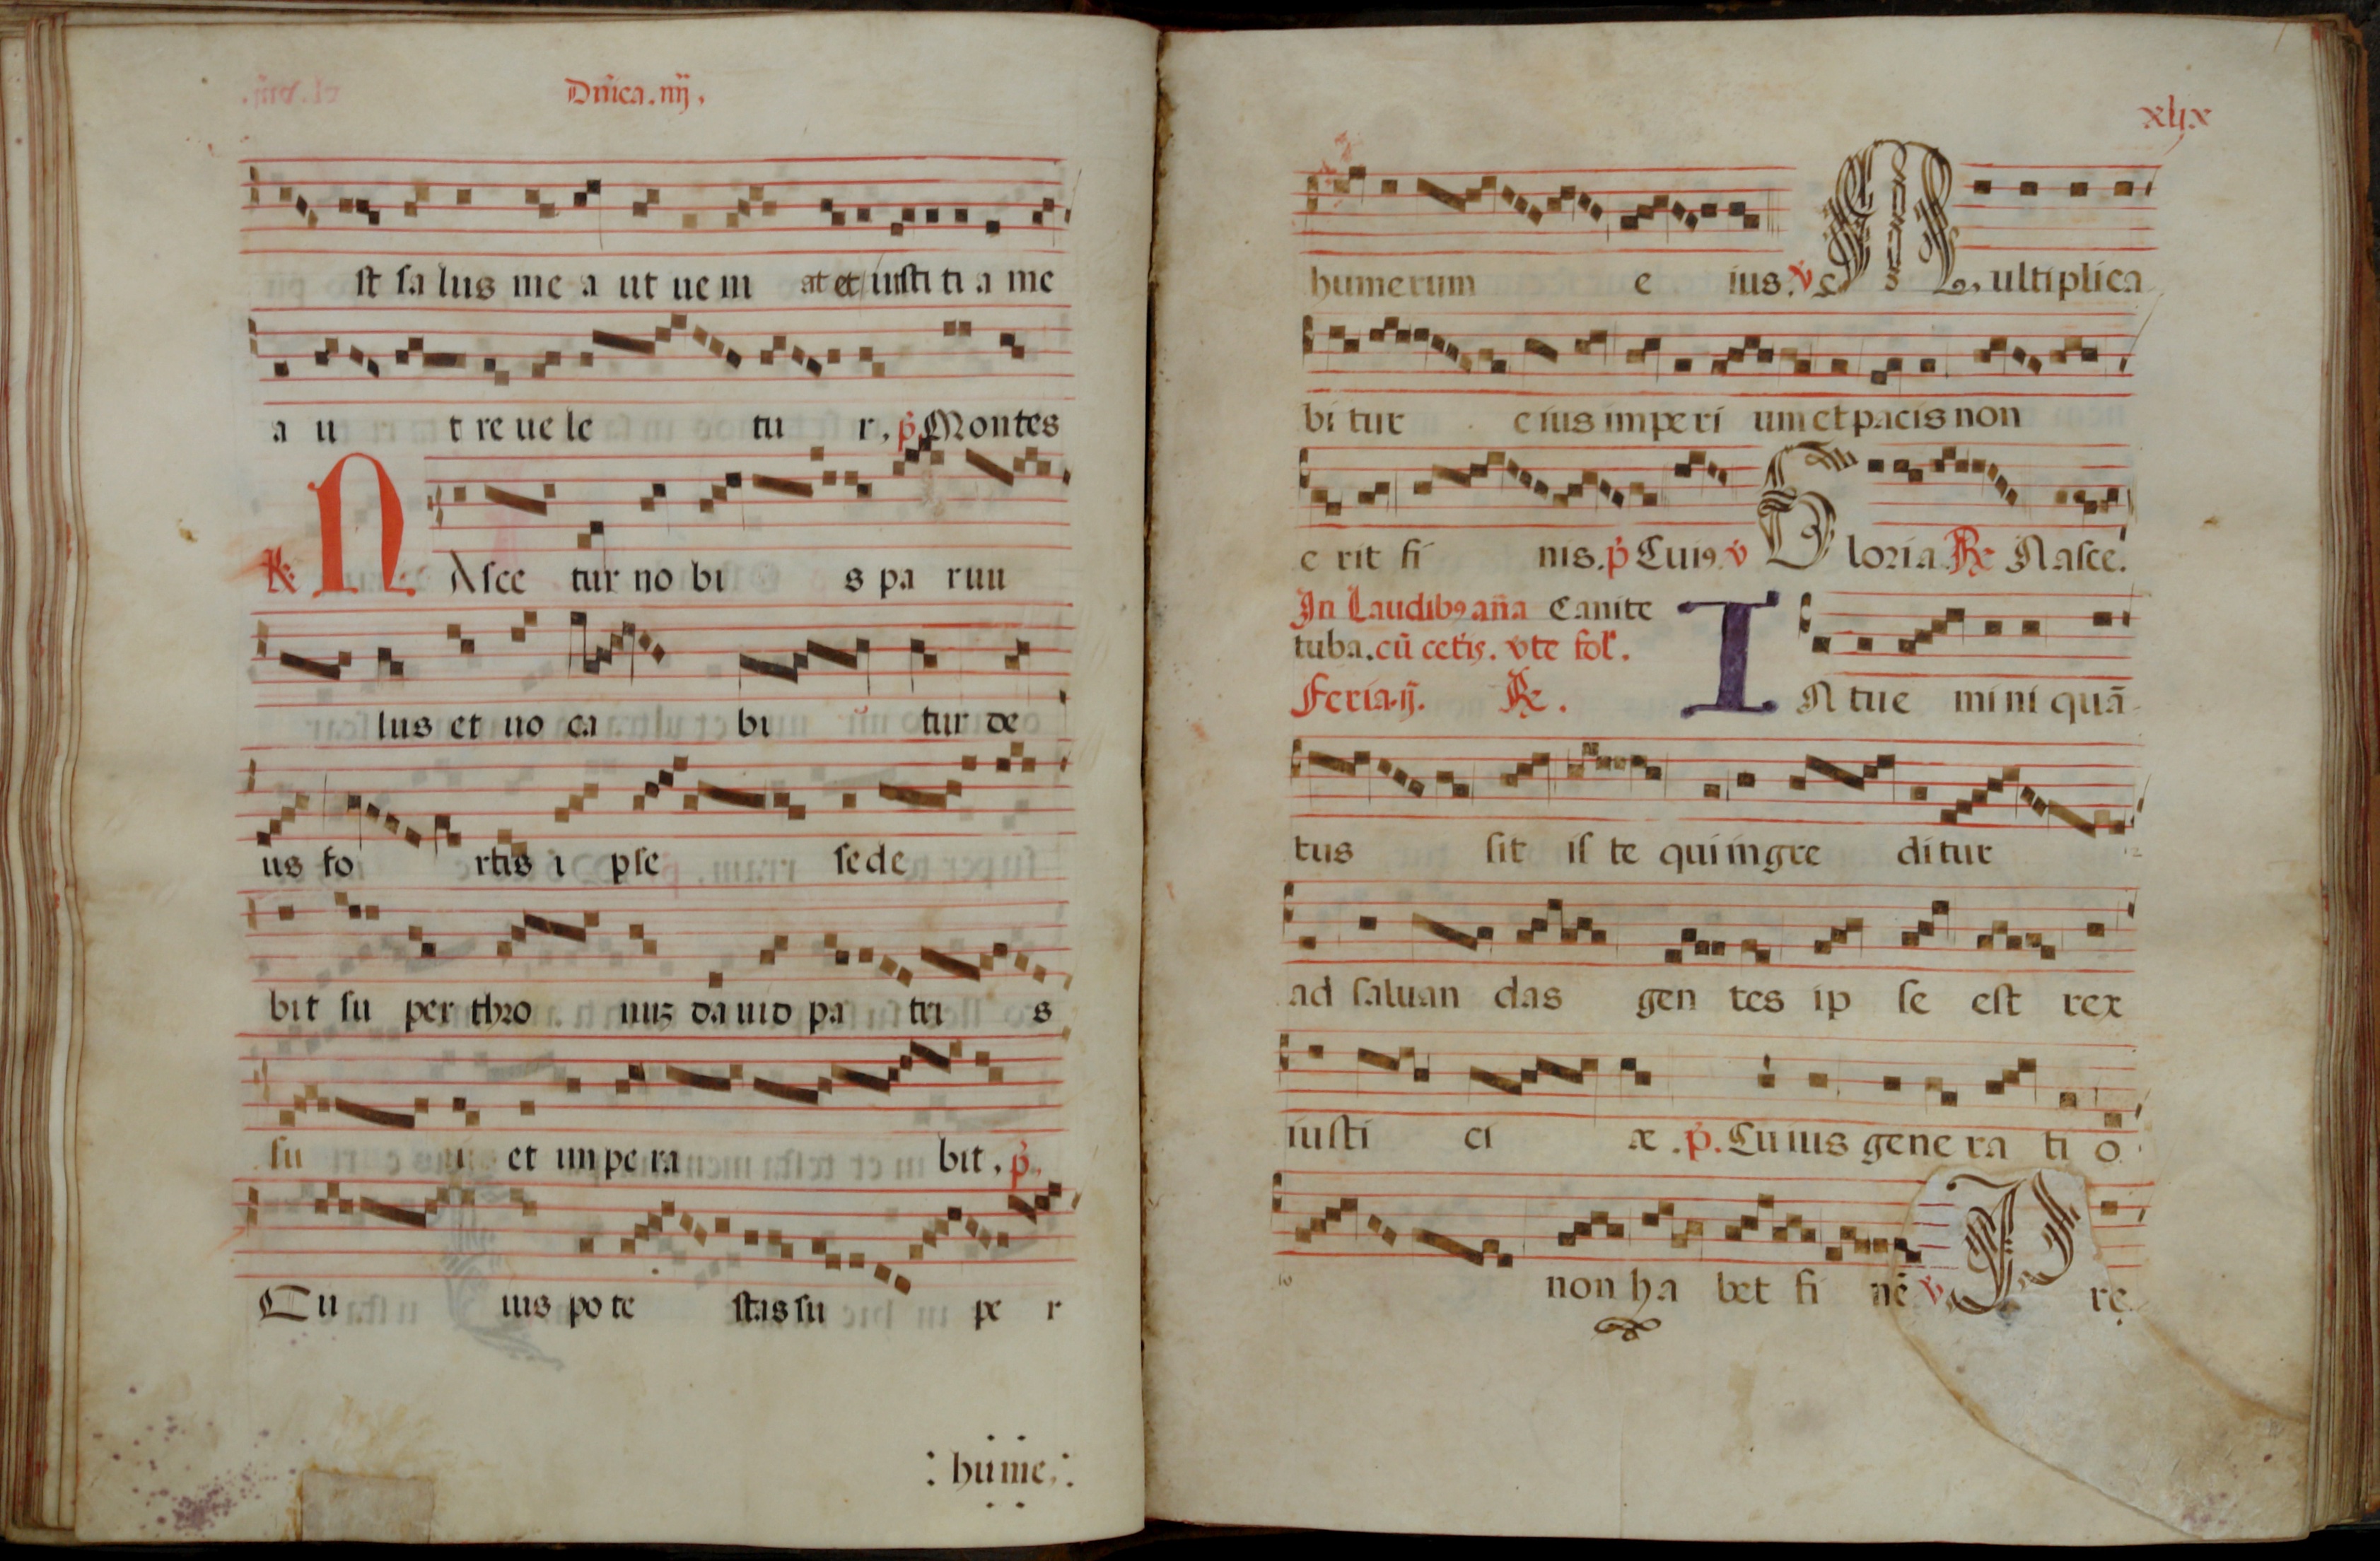 Dñica.iiij.
st sa lus me a ut ue ni at et iusti ti a me
a u t re ue le tu r. p̄. Montes
R. NAsce tur no bi s pa ruu
lus et uo ca bi tur de
us fo rtis i pse sede
bit su per thro nuȝ da uid pa tri s
su i et im pe ra bit. p̄.
Cu ius po te stas su pe r
: hume. :
xlix
humerum e ius. v̄ Multiplica
bi tur e ius impe ri um et pacis non
e rit fi nis. p̄ Cuiꝰ. v̄ Gloria R̄ Nasce.
In Laudibꝰ aña Canite
tuba. cū cetis. vt e fol.
Feria.ij. R̄. INtue mini quā
tus sit is te qui ingre ditur
ad saluan das gen tes ip se est rex
iusti ci æ. p̄. Cu ius gene ra ti o
non ha bet fi nē v̄. Pre